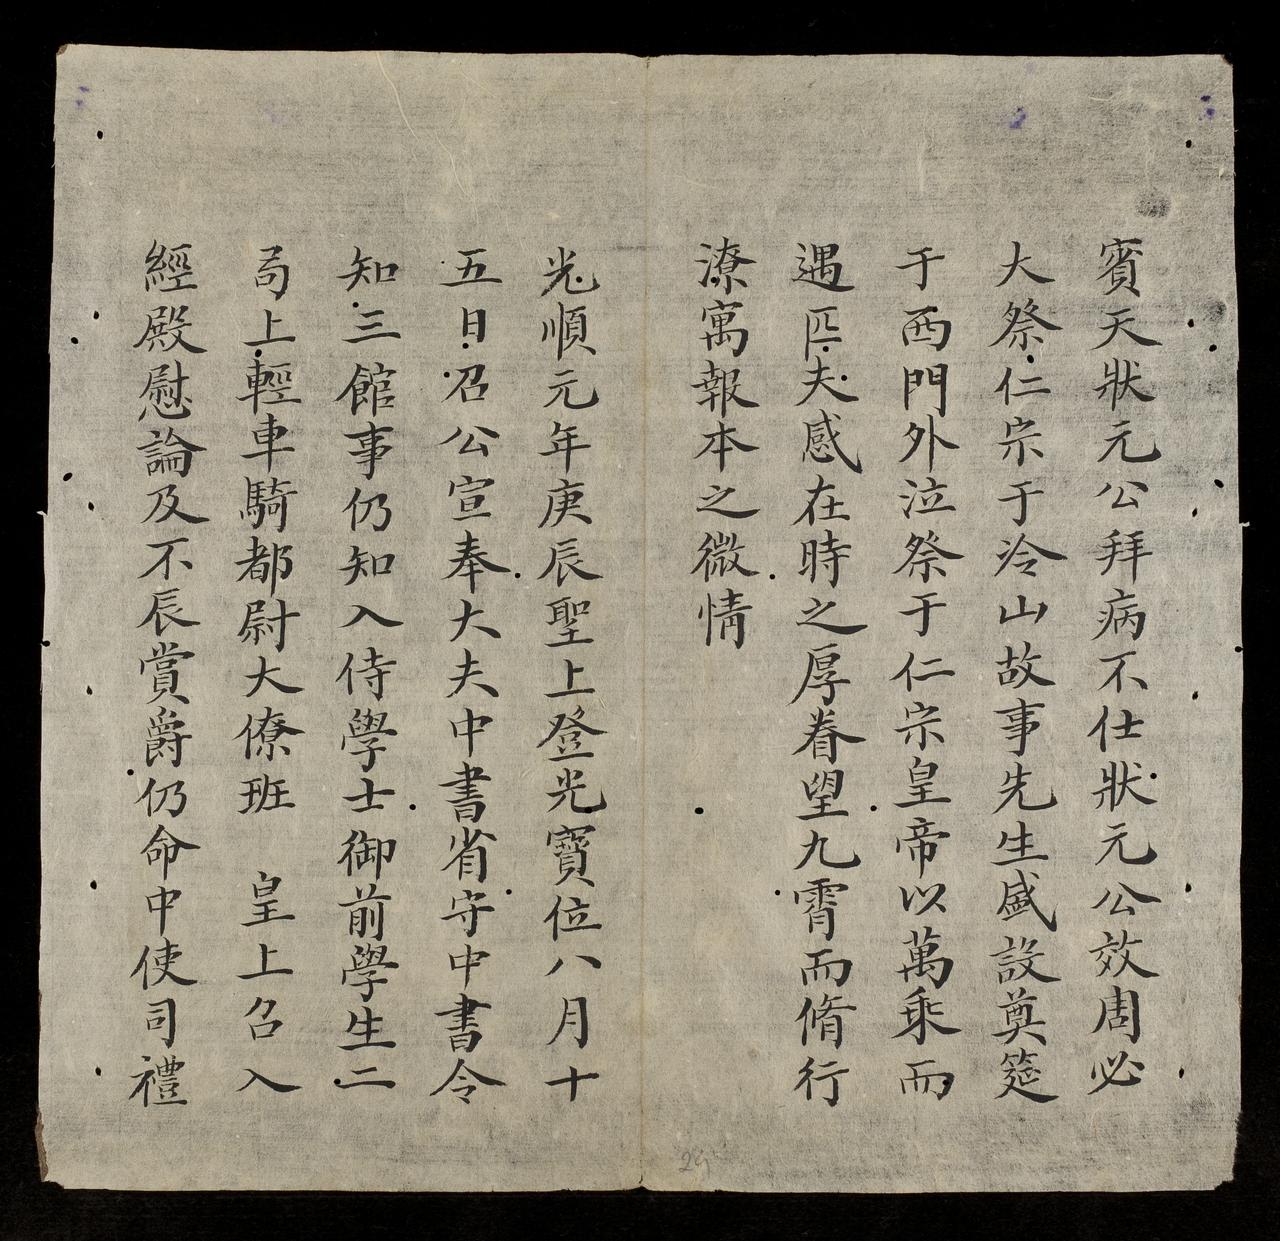 賓天狀元公拜病不仕狀元公效周必
大祭仁宗于泠山故事先生盛設奠筵
于西門外泣祭于仁宗皇帝以萬乘而
遇匹夫感在時之厚眷望九霄而脩行
潦寓報本之微情
光順元年庚辰聖上登光寶位八月十
五日召公宣奉大夫中書省守中書令
知三館事仍知入侍學士御前學生二
局上輕車騎都尉大僚班 皇上召入
經殿慰論及不辰賞爵仍命中使司禮
29